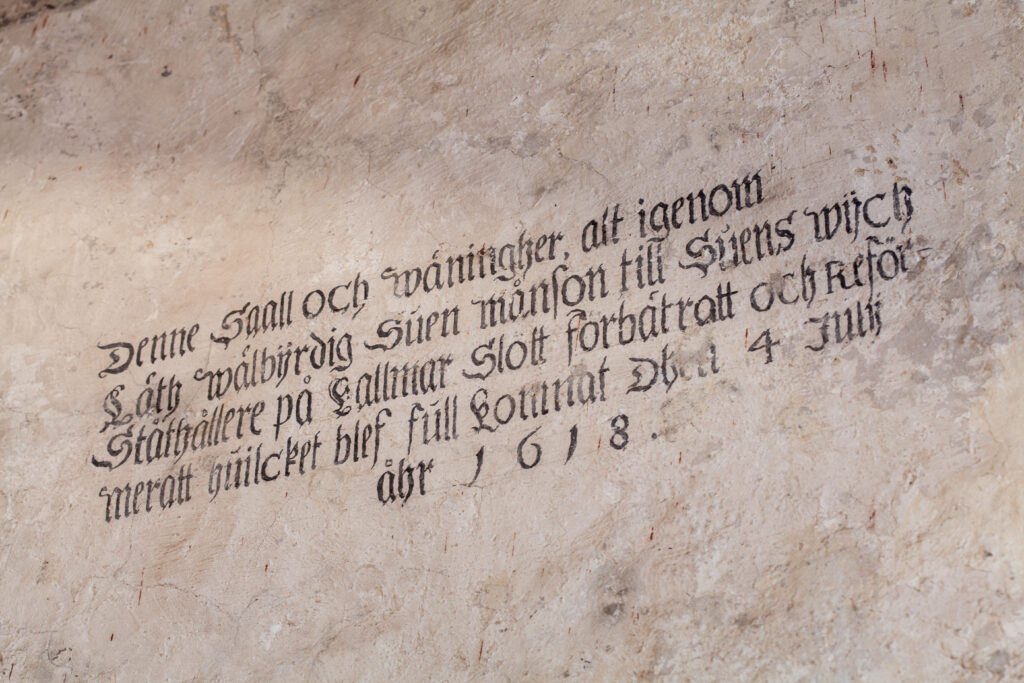 Denne Saall och wåningher, alt igenom
Låth wälbÿrdig Suen månson till Suens wijch
Ståthållere på Kallmar Slött förbätratt och Reför-
meratt huilcket blef full Komnat Dhen 4 Julij
åhr 1618.